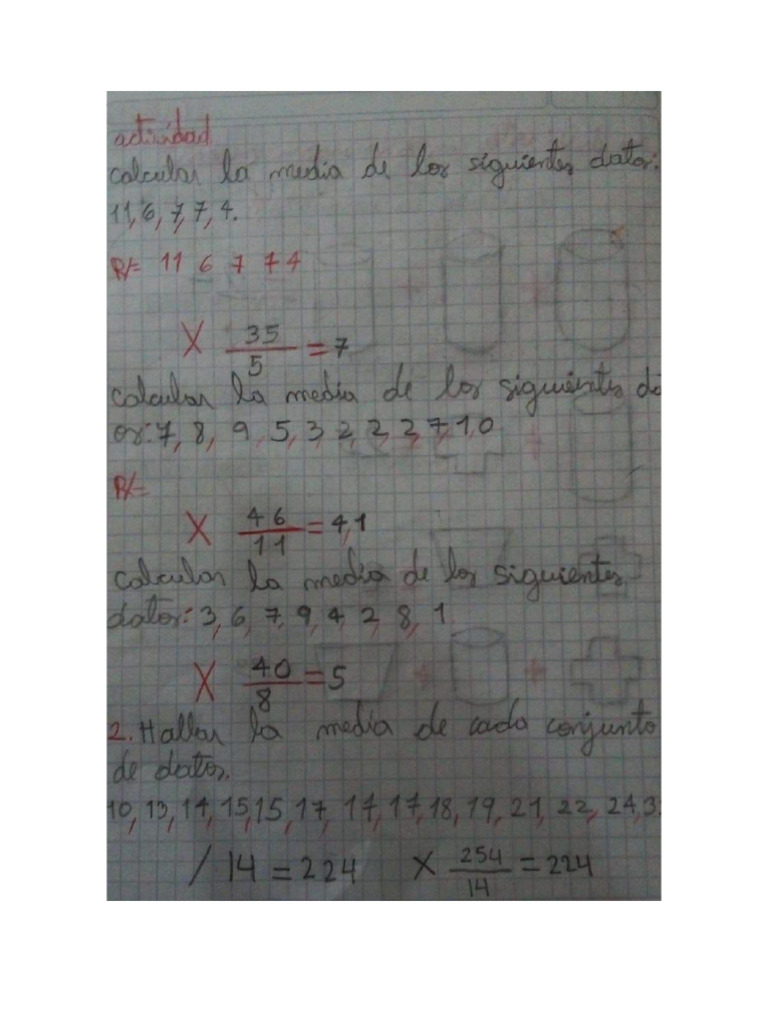 actividad
calcular la media de los siguientes datos:
11, 6, 7, 7, 4.
R/= 11 6 7 7 4
X 35/5 = 7
calcular la media de los siguientes da
os: 7, 8, 9, 5, 3, 2, 2, 2, 7, 1, 0
R/=
X 46/11 = 4,1
calcular la media de los siguientes
datos: 3, 6, 7, 9, 4, 2, 8, 1
X 40/8 = 5
2. Hallar la media de cada conjunto
de datos.
10, 13, 14, 15, 15, 17, 17, 17, 18, 19, 21, 22, 24, 3
/ 14 = 224 X 254/14 = 224